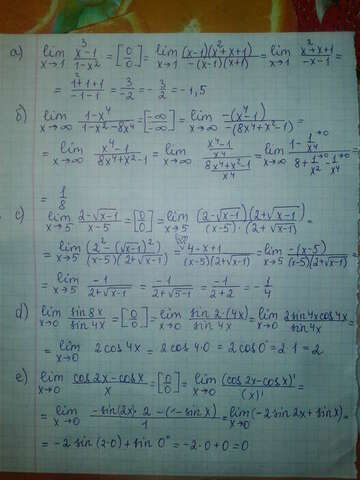 a) lim x→1 (x³-1)/(1-x²) = [0/0] = lim x→1 ((x-1)(x²+x+1))/(-(x-1)(x+1)) = lim x→1 (x²+x+1)/(-x-1) =
= (1²+1+1)/(-1-1) = 3/-2 = -3/2 = -1,5
б) lim x→∞ (1-x⁴)/(1-x²-8x⁴) = [-∞/-∞] = lim x→∞ (-(x⁴-1))/(-(8x⁴+x²-1)) =
= lim x→∞ (x⁴-1)/(8x⁴+x²-1) = lim x→∞ ((x⁴-1)/x⁴)/((8x⁴+x²-1)/x⁴) = lim x→∞ (1-1/x⁴→0)/(8+1/x²→0-1/x⁴→0) =
= 1/8
c) lim x→5 (2-√x-1)/(x-5) = [0/0] = lim x→5 ((2-√x-1)(2+√x-1))/((x-5)·(2+√x-1)) =
= lim x→5 (2²-(√x-1)²)/((x-5)(2+√x-1)) = (4-x+1)/((x-5)(2+√x-1)) = lim x→5 (-(x-5))/((x-5)(2+√x-1)) =
= lim x→5 -1/(2+√x-1) = -1/(2+√5-1) = -1/(2+2) = -1/4
d) lim x→0 (sin 8x)/(sin 4x) = [0/0] = lim x→0 (sin 2·(4x))/(sin 4x) = lim x→0 (2 sin 4x cos 4x)/(sin 4x) =
= lim x→0 2 cos 4x = 2 cos 4·0 = 2 cos 0° = 2·1 = 2
e) lim x→0 (cos 2x - cos x)/x = [0/0] = lim x→0 (cos 2x - cos x)'/(x)' =
= lim x→0 (-sin(2x)·2-(-sin x))/1 = lim x→0 (-2 sin 2x + sin x) =
= -2 sin (2·0) + sin 0° = -2·0+0 = 0